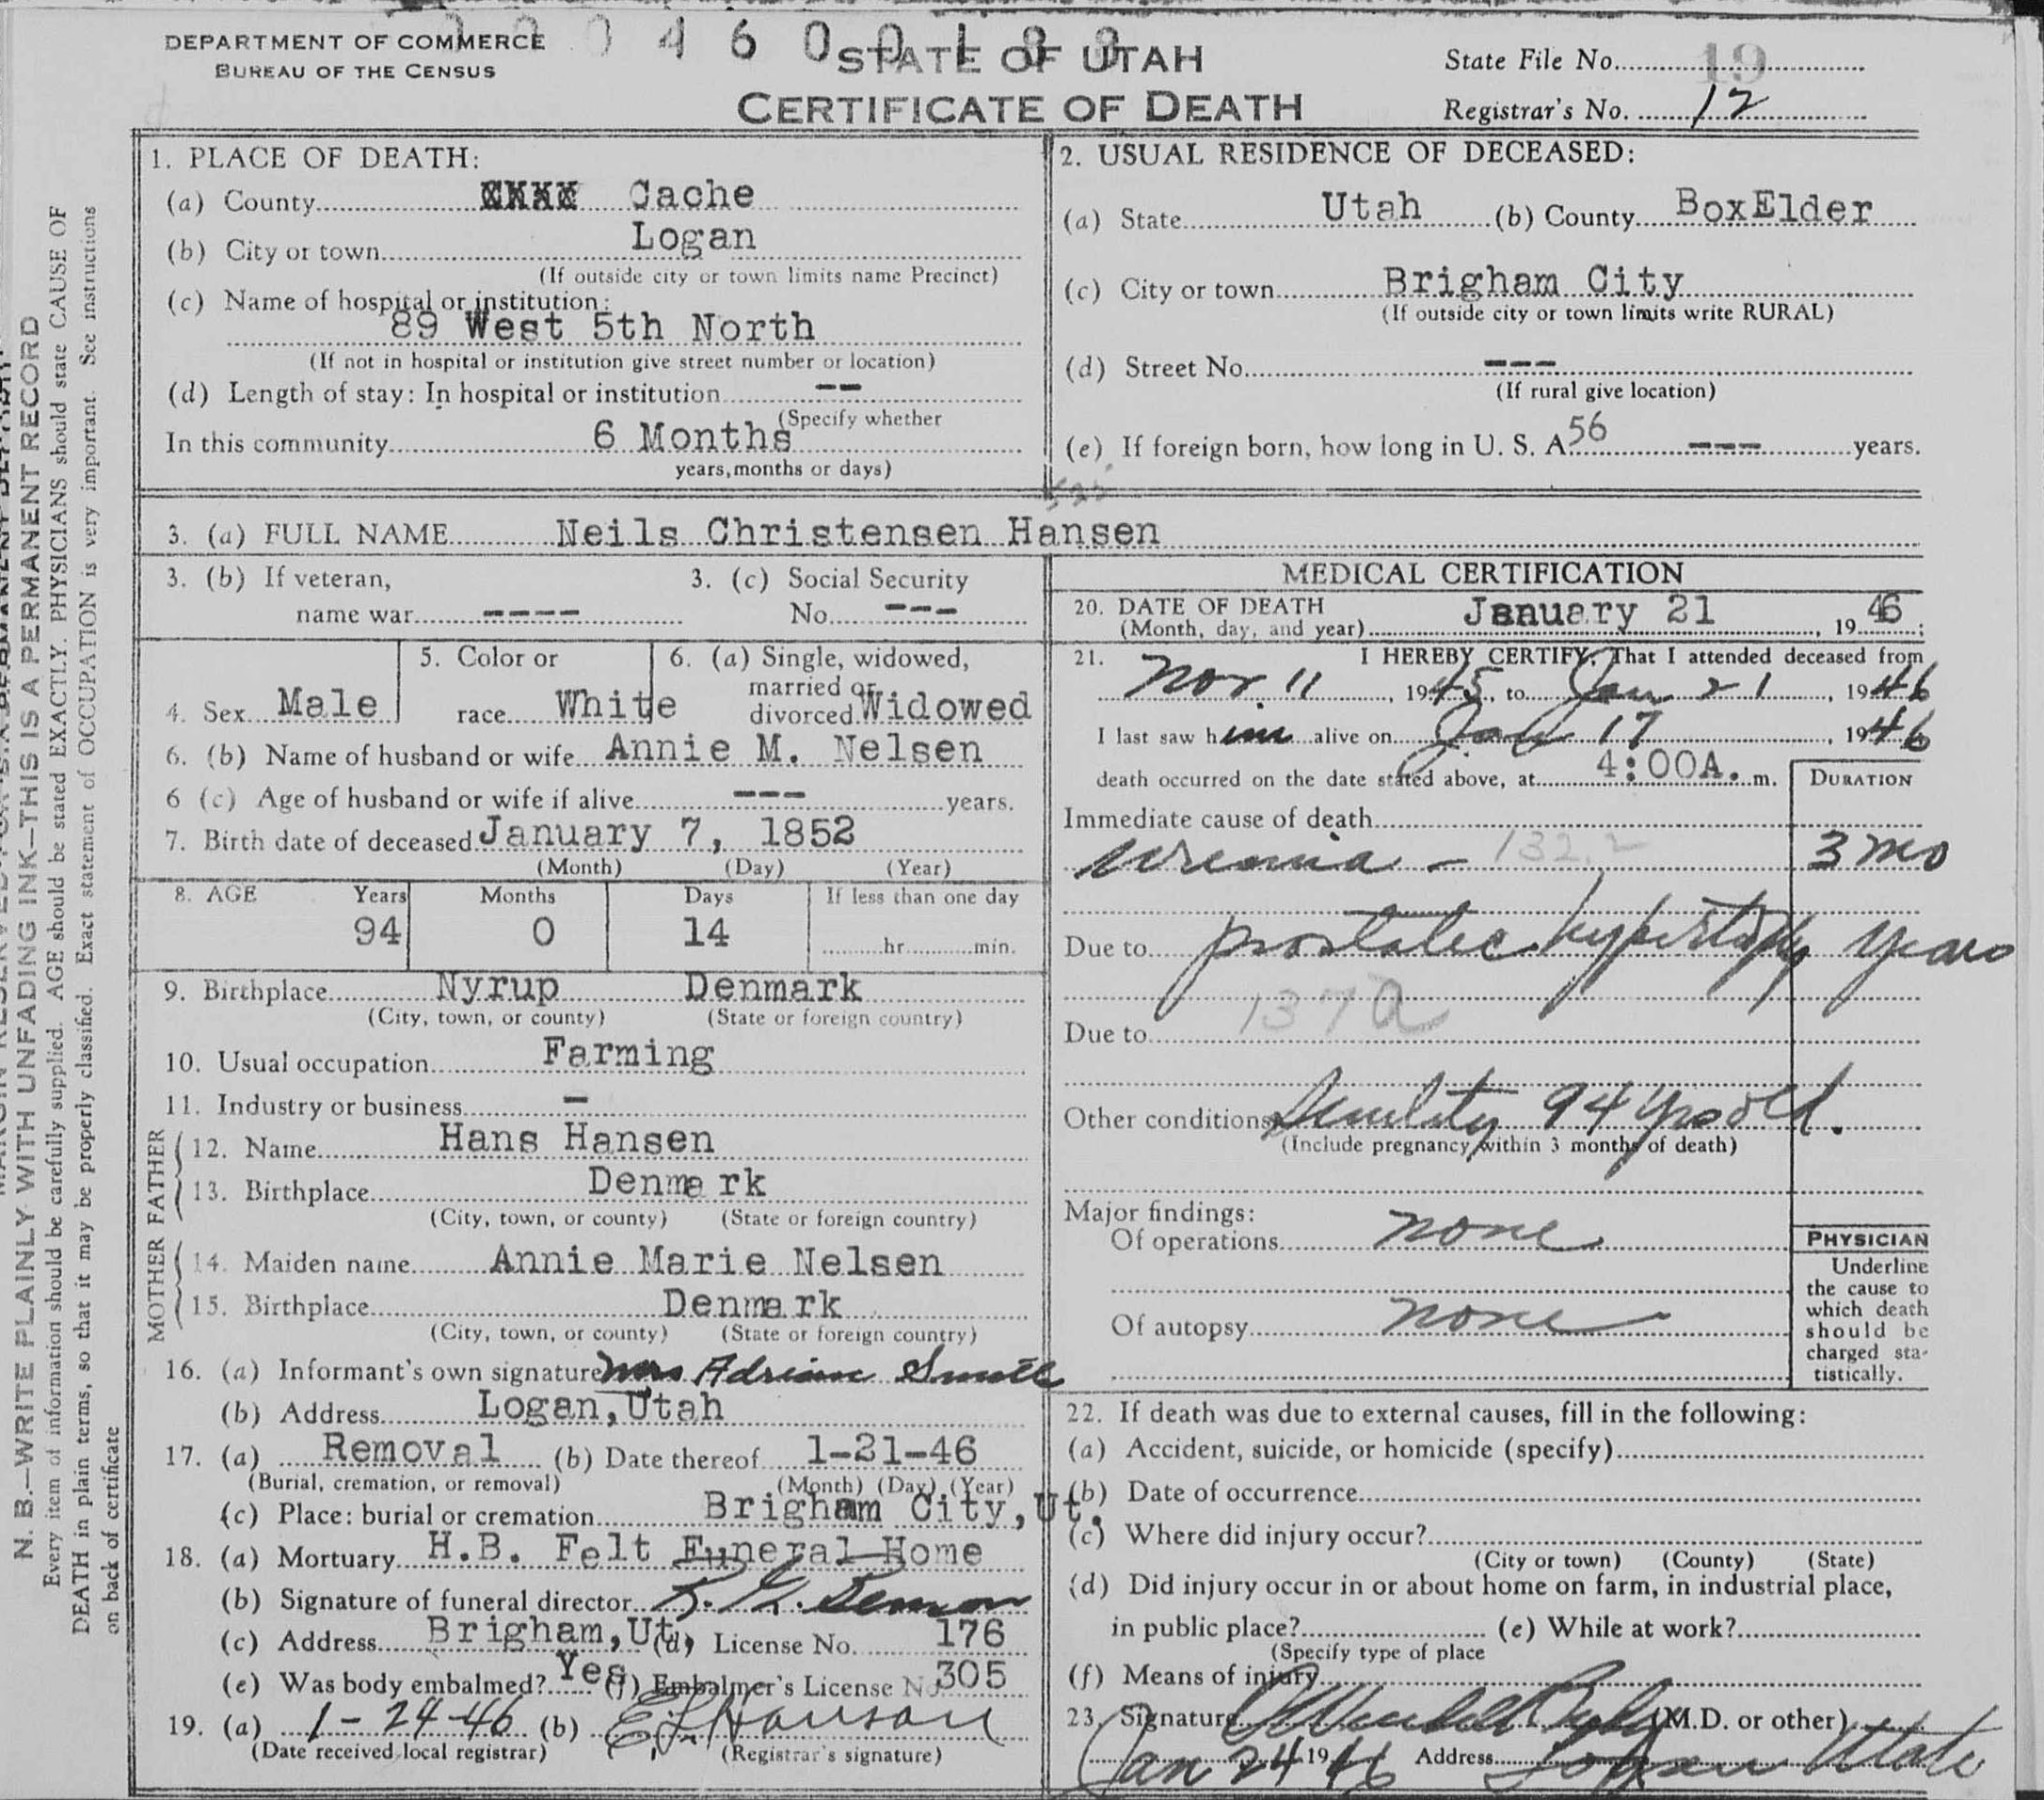 DEPARTMENT OF COMMERCE
BUREAU OF THE CENSUS
STATE OF UTAH
CERTIFICATE OF DEATH
State File No. 19
Registrar's No. 12
1. PLACE OF DEATH:
(a) County Cache
(b) City or town Logan
(If outside city or town limits name Precinct)
(c) Name of hospital or institution:
89 West 5th North
(If not in hospital or institution give street number or location)
(d) Length of stay: In hospital or institution --
(Specify whether
In this community 6 Months
years, months or days)
2. USUAL RESIDENCE OF DECEASED:
(a) State Utah (b) County BoxElder
(c) City or town Brigham City
(If outside city or town limits write RURAL)
(d) Street No. ---
(If rural give location)
(e) If foreign born, how long in U. S. A. 56 --- years.
3. (a) FULL NAME Neils Christensen Hansen
3. (b) If veteran,
name war ----
3. (c) Social Security
No. ---
4. Sex Male
5. Color or
race White
6. (a) Single, widowed,
married or
divorced Widowed
6. (b) Name of husband or wife Annie M. Nelsen
6 (c) Age of husband or wife if alive --- years.
7. Birth date of deceased January 7, 1852
(Month) (Day) (Year)
8. AGE Years Months Days If less than one day
94 0 14 hr. min.
9. Birthplace Nyrup Denmark
(City, town, or county) (State or foreign country)
10. Usual occupation Farming
11. Industry or business -
FATHER
12. Name Hans Hansen
13. Birthplace Denmark
(City, town, or county) (State or foreign country)
MOTHER
14. Maiden name Annie Marie Nelsen
15. Birthplace Denmark
(City, town, or county) (State or foreign country)
16. (a) Informant's own signature Mrs Adrian Smith
(b) Address Logan, Utah
17. (a) Removal (b) Date thereof 1-21-46
(Burial, cremation, or removal) (Month) (Day) (Year)
(c) Place: burial or cremation Brigham City, Ut.
18. (a) Mortuary H.B. Felt Funeral Home
(b) Signature of funeral director
(c) Address Brigham, Ut. (d) License No. 176
(e) Was body embalmed? Yes (f) Embalmer's License No. 305
19. (a) 1-24-46 (b) E L Hanson
(Date received local registrar) (Registrar's signature)
MEDICAL CERTIFICATION
20. DATE OF DEATH
(Month, day, and year) January 21, 1946;
21. I HEREBY CERTIFY, That I attended deceased from
Nov. 11, 1945, to Jan 21, 1946
I last saw him alive on Jan 17, 1946
death occurred on the date stated above, at 4:00A. m.
DURATION
Immediate cause of death
Uremia - 132.2 3 mo
Due to prostatic hypertrophy years
137a
Due to
Other conditions Senility 94 yrs old.
(Include pregnancy within 3 months of death)
Major findings:
Of operations none
Of autopsy none
PHYSICIAN
Underline
the cause to
which death
should be
charged sta-
tistically.
22. If death was due to external causes, fill in the following:
(a) Accident, suicide, or homicide (specify)
(b) Date of occurrence
(c) Where did injury occur?
(City or town) (County) (State)
(d) Did injury occur in or about home on farm, in industrial place,
in public place? (e) While at work?
(Specify type of place
(f) Means of injury
23. Signature (M.D. or other)
Jan 24 1946 Address Logan Utah
N. B.—WRITE PLAINLY WITH UNFADING INK—THIS IS A PERMANENT RECORD
Every item of information should be carefully supplied. AGE should be stated EXACTLY. PHYSICIANS should state CAUSE OF
DEATH in plain terms, so that it may be properly classified. Exact statement of OCCUPATION is very important. See instructions
on back of certificate